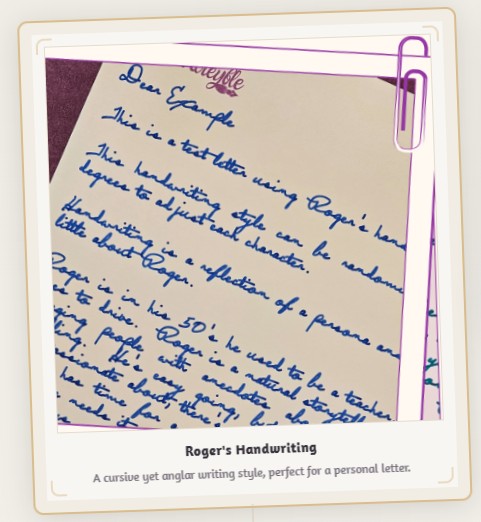 Dear Example
This is a test letter using Roger's hand
This handwriting style can be randomi
degrees to adjust each character.
Handwriting is a reflection of a persons and
little about Roger.
Roger is in his 50's he used to be a teacher
es to drive. Roger is a natural storytell
ging people with anecdotes abo
ling. He's easy going, bu
ssionate about, there's
has time for
needs it
Roger's Handwriting
A cursive yet anglar writing style, perfect for a personal letter.